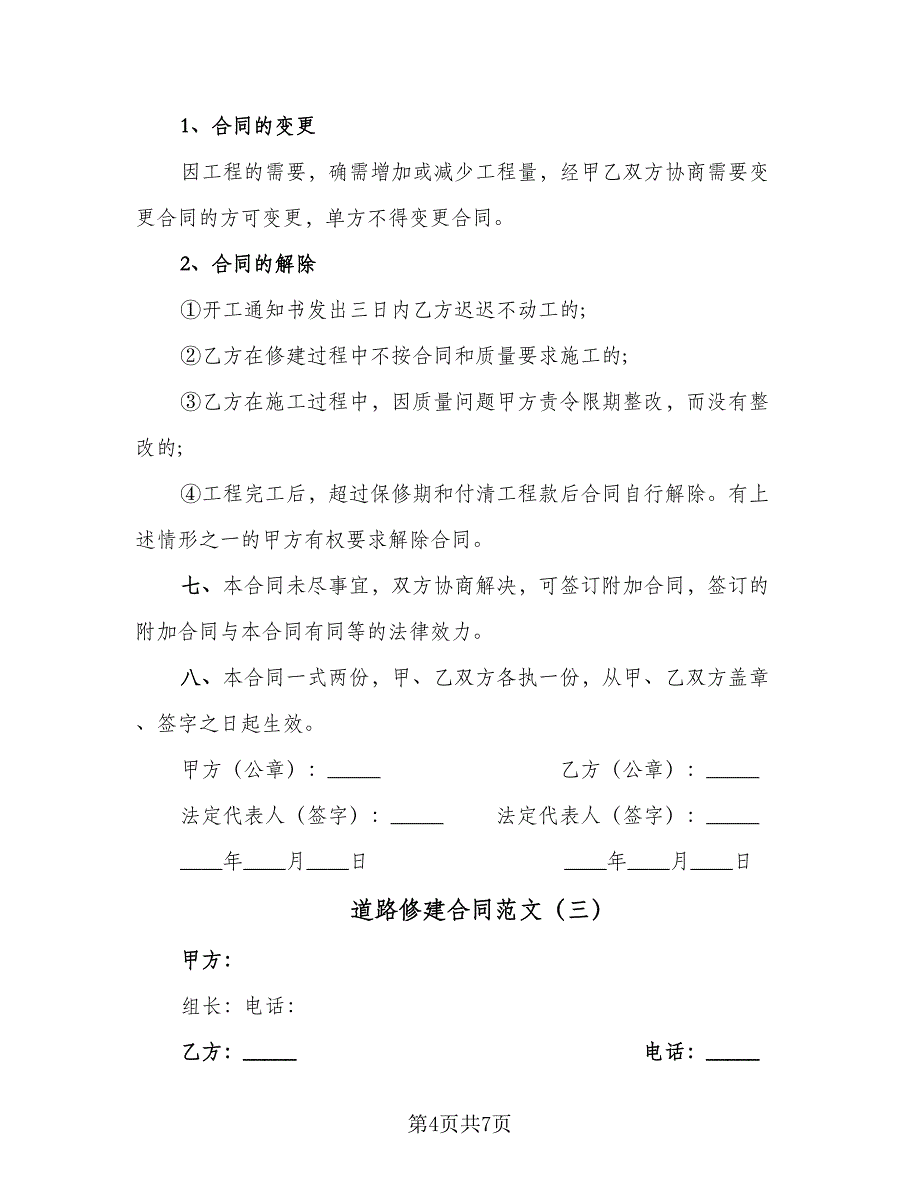 1、合同的变更
因工程的需要，确需增加或减少工程量，经甲乙双方协商需要变
更合同的方可变更，单方不得变更合同。
2、合同的解除
①开工通知书发出三日内乙方迟迟不动工的;
②乙方在修建过程中不按合同和质量要求施工的;
③乙方在施工过程中，因质量问题甲方责令限期整改，而没有整
改的;
④工程完工后，超过保修期和付清工程款后合同自行解除。有上
述情形之一的甲方有权要求解除合同。
七、本合同未尽事宜，双方协商解决，可签订附加合同，签订的
附加合同与本合同有同等的法律效力。
八、本合同一式两份，甲、乙双方各执一份，从甲、乙双方盖章
、签字之日起生效。
甲方（公章）：_____ 乙方（公章）：_____
法定代表人（签字）：_____ 法定代表人（签字）：_____
____年____月____日 ____年____月____日
道路修建合同范文（三）
甲方：
组长：电话：
乙方：_____ 电话：_____
第4页共7页